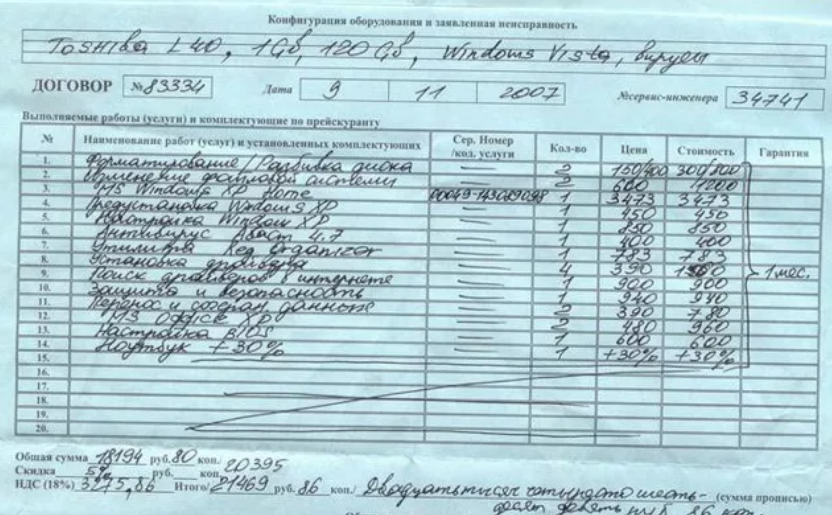 Конфигурация оборудования и заявленная неисправность
Toshiba L40, 1Gб, 120 Gб, Windows Vista, вирусы
ДОГОВОР №83334 Дата 9 11 2007 №сервис-инженера 34741
Выполняемые работы (услуги) и комплектующие по прейскуранту
№ Наименование работ (услуг) и установленных комплектующих Сер. Номер /код. услуги Кол-во Цена Стоимость Гарантия
1. Форматирование/Разбивка диска — 2 150/400 300/800
2. Изменение файловой системы — 2 600 1200
3. MS Windows XP Home 00049-143089098 1 3473 3473
4. Предустановка Windows XP — 1 450 450
5. Настройка Window XP — 1 850 850
6. Антивирус Аваст 4.7 — 1 400 400
7. Утилита Reg Organizer — 1 783 783
8. Установка драйвера — 4 390
9. Поиск драйверов в интернете — 1 900 900 1 мес.
10. Защита и безопасность — 1 940 940
11. Перенос и сохран данных — 2 390 780
12. MS Office XP — 2 480 960
13. Настройка BIOS — 1 600 600
14. Ноутбук +30% — 1 +30% +30%
15.
16.
17.
18.
19.
20.
Общая сумма 18194 руб. 80 коп. 20395
Скидка 5% руб. коп.
НДС (18%) 3275,86 Итого/ 21469 руб. 86 коп./ Двадцать тысяч четыреста шесть- (сумма прописью)
десят девять руб. 86 коп.